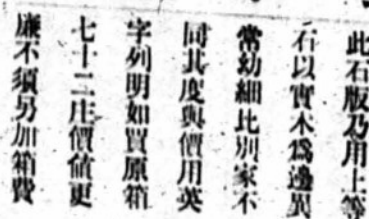 此石版乃用上等
石以實木爲邊異
常幼細比別家不
同其度與價用英
字列明如買原箱
七十二庄價値更
廉不須另加箱費